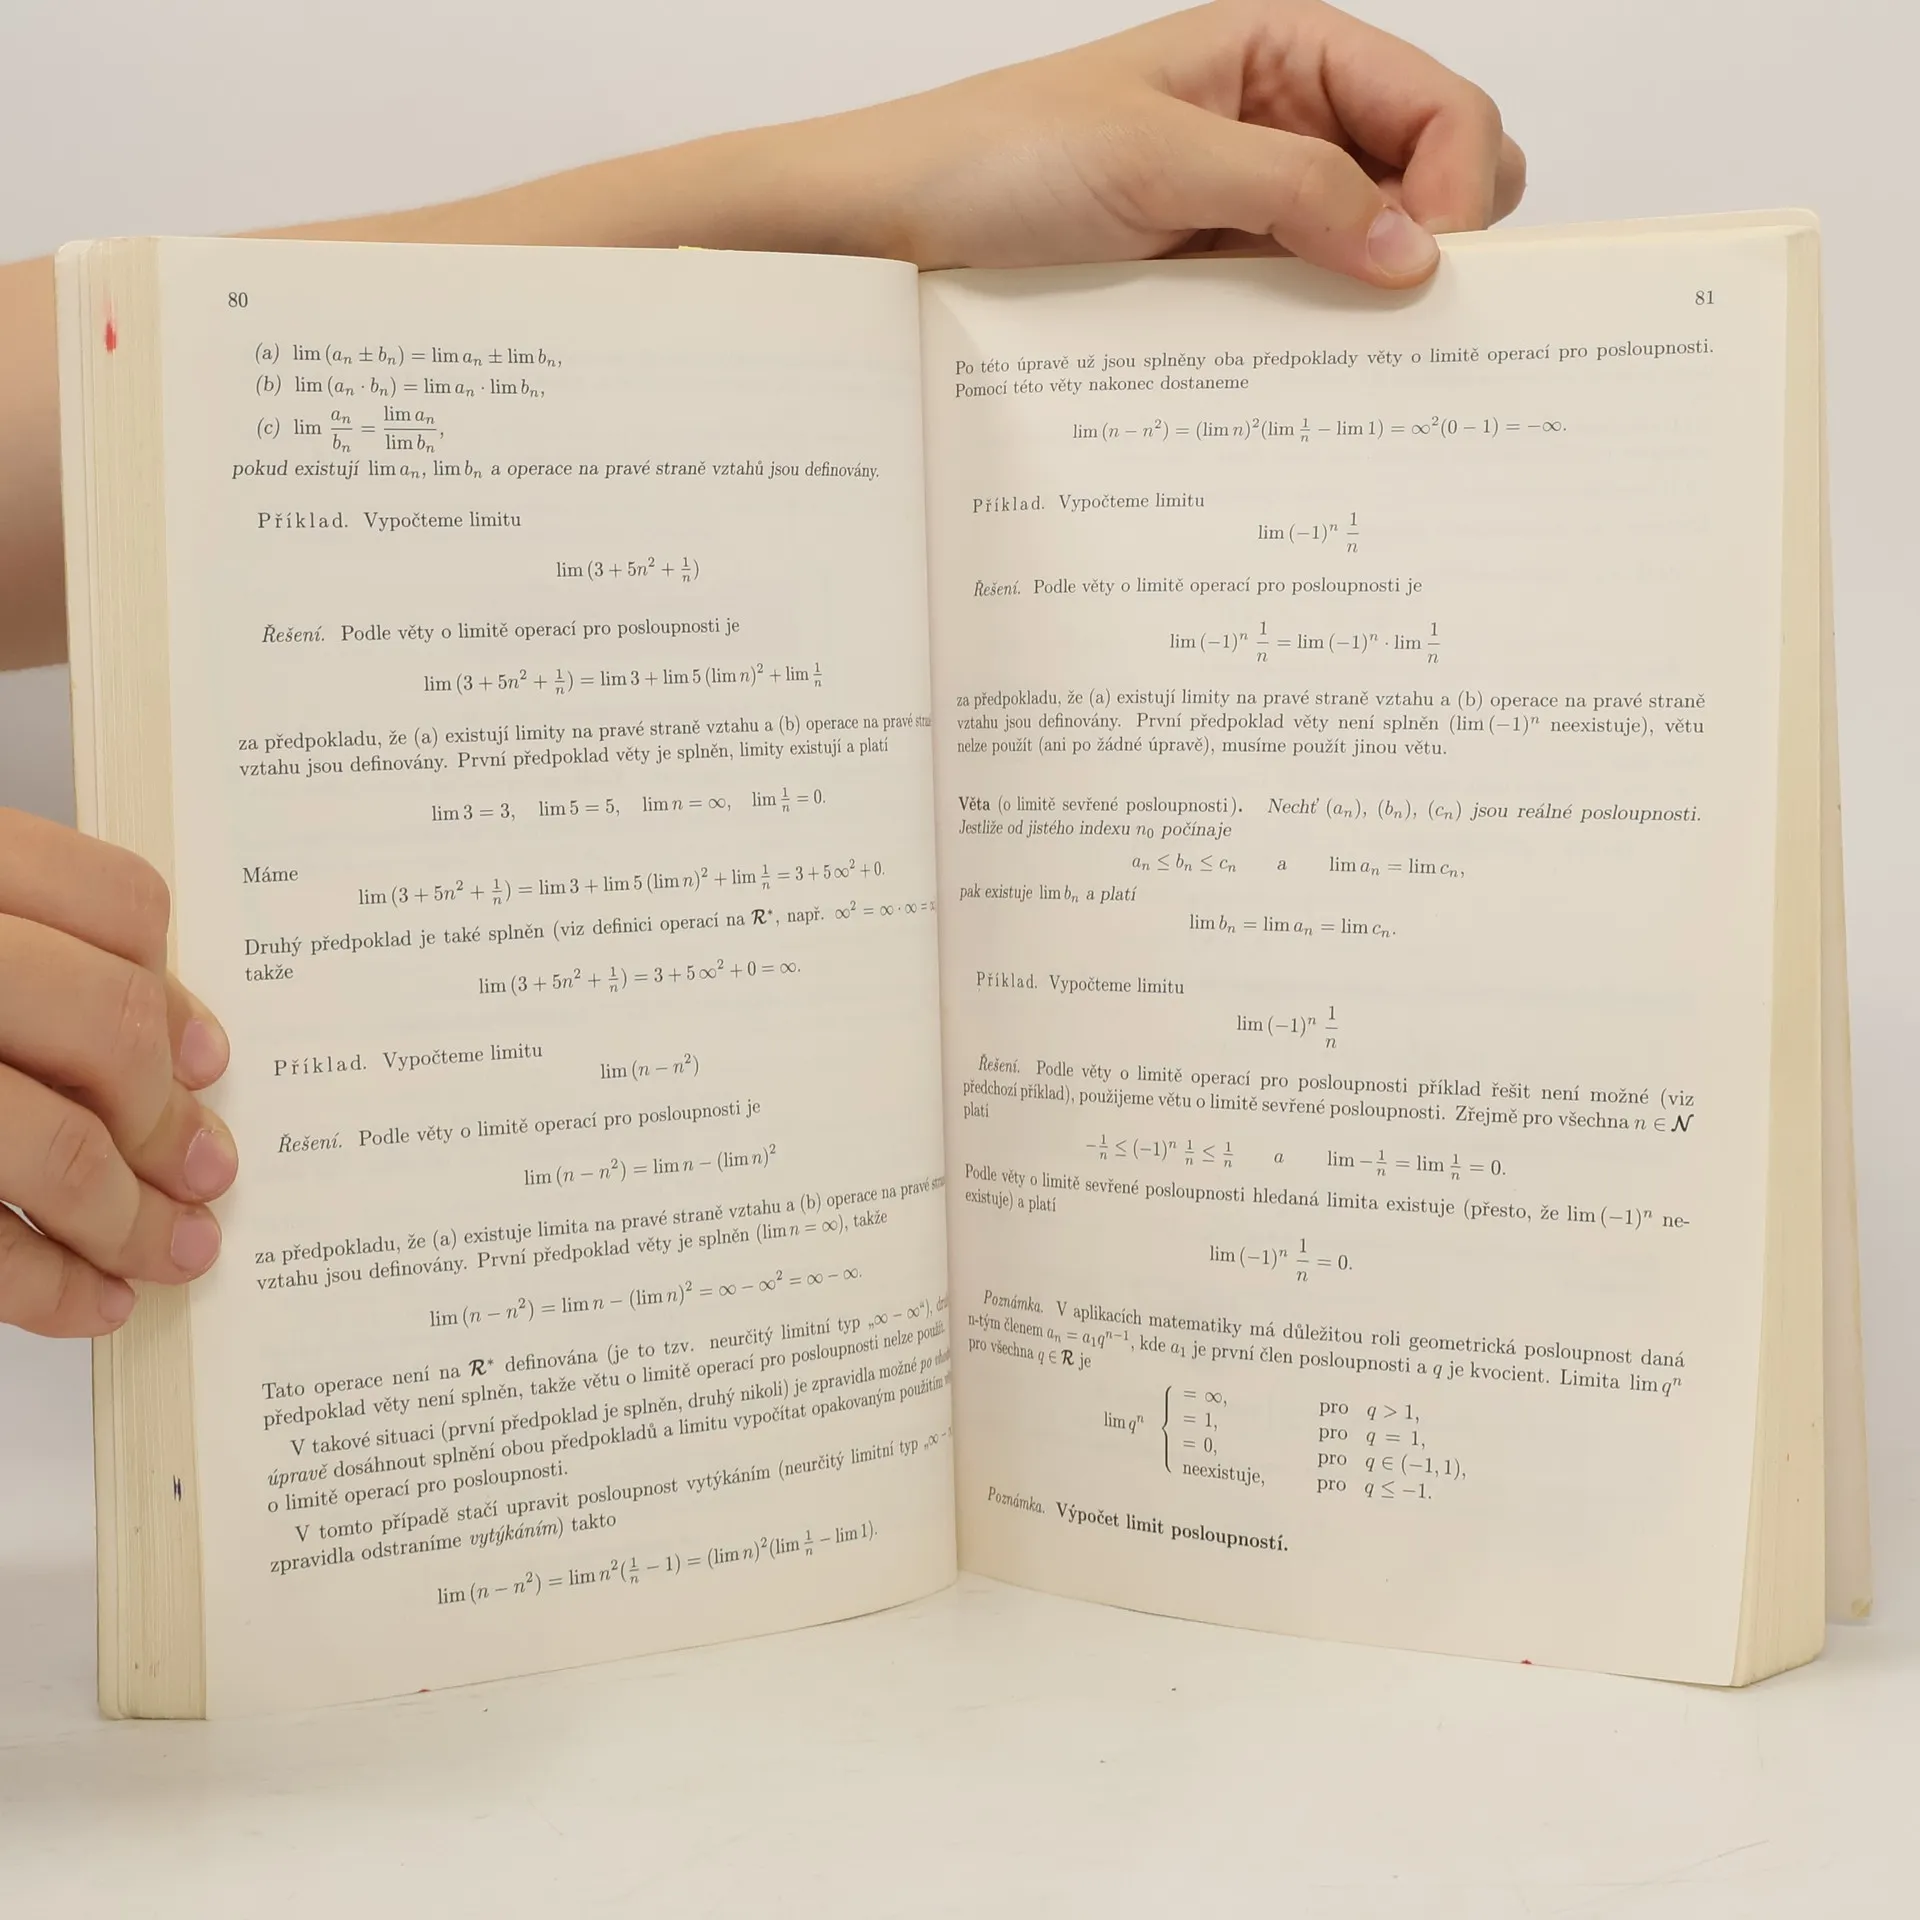 80
(a) lim (aₙ ± bₙ) = lim aₙ ± lim bₙ,
(b) lim (aₙ · bₙ) = lim aₙ · lim bₙ,
(c) lim aₙ/bₙ = lim aₙ/lim bₙ,
pokud existují lim aₙ, lim bₙ a operace na pravé straně vztahů jsou definovány.
Příklad. Vypočteme limitu
lim (3 + 5n² + 1/n)
Řešení. Podle věty o limitě operací pro posloupnosti je
lim (3 + 5n² + 1/n) = lim 3 + lim 5 (lim n)² + lim 1/n
za předpokladu, že (a) existují limity na pravé straně vztahu a (b) operace na pravé
vztahu jsou definovány. První předpoklad věty je splněn, limity existují a platí
lim 3 = 3, lim 5 = 5, lim n = ∞, lim 1/n = 0.
Máme
lim (3 + 5n² + 1/n) = lim 3 + lim 5 (lim n)² + lim 1/n = 3 + 5 ∞² + 0.
Druhý předpoklad je také splněn (viz definici operací na R*, např. ∞² = ∞ · ∞ =
takže
lim (3 + 5n² + 1/n) = 3 + 5 ∞² + 0 = ∞.
Příklad. Vypočteme limitu
lim (n − n²)
Řešení. Podle věty o limitě operací pro posloupnosti je
lim (n − n²) = lim n − (lim n)²
za předpokladu, že (a) existuje limita na pravé straně vztahu a (b) operace na pravé
vztahu jsou definovány. První předpoklad věty je splněn (lim n = ∞), takže
lim (n − n²) = lim n − (lim n)² = ∞ − ∞² = ∞ − ∞.
Tato operace není na R* definována (je to tzv. neurčitý limitní typ „∞ − ∞“),
předpoklad věty není splněn, takže větu o limitě operací pro posloupnosti nelze použít.
V takové situaci (první předpoklad je splněn, druhý nikoli) je zpravidla možné po
úpravě dosáhnout splnění obou předpokladů a limitu vypočítat opakovaným použitím
o limitě operací pro posloupnosti.
V tomto případě stačí upravit posloupnost vytýkáním (neurčitý limitní typ „∞ −
zpravidla odstraníme vytýkáním) takto
lim (n − n²) = lim n²(1/n − 1) = (lim n)²(lim 1/n − lim 1).
81
Po této úpravě už jsou splněny oba předpoklady věty o limitě operací pro posloupnosti.
Pomocí této věty nakonec dostaneme
lim (n − n²) = (lim n)²(lim 1/n − lim 1) = ∞²(0 − 1) = −∞.
Příklad. Vypočteme limitu
lim (−1)ⁿ 1/n
Řešení. Podle věty o limitě operací pro posloupnosti je
lim (−1)ⁿ 1/n = lim (−1)ⁿ · lim 1/n
za předpokladu, že (a) existují limity na pravé straně vztahu a (b) operace na pravé straně
vztahu jsou definovány. První předpoklad věty není splněn (lim (−1)ⁿ neexistuje), větu
nelze použít (ani po žádné úpravě), musíme použít jinou větu.
Věta (o limitě sevřené posloupnosti). Nechť (aₙ), (bₙ), (cₙ) jsou reálné posloupnosti.
Jestliže od jistého indexu n₀ počínaje
aₙ ≤ bₙ ≤ cₙ a lim aₙ = lim cₙ,
pak existuje lim bₙ a platí
lim bₙ = lim aₙ = lim cₙ.
Příklad. Vypočteme limitu
lim (−1)ⁿ 1/n
Řešení. Podle věty o limitě operací pro posloupnosti příklad řešit není možné (viz
předchozí příklad), použijeme větu o limitě sevřené posloupnosti. Zřejmě pro všechna n ∈ N
platí
−1/n ≤ (−1)ⁿ 1/n ≤ 1/n a lim −1/n = lim 1/n = 0.
Podle věty o limitě sevřené posloupnosti hledaná limita existuje (přesto, že lim (−1)ⁿ ne-
existuje) a platí
lim (−1)ⁿ 1/n = 0.
Poznámka. V aplikacích matematiky má důležitou roli geometrická posloupnost daná
n-tým členem aₙ = a₁qⁿ⁻¹, kde a₁ je první člen posloupnosti a q je kvocient. Limita lim qⁿ
pro všechna q ∈ R je
lim qⁿ { = ∞, pro q > 1,
= 1, pro q = 1,
= 0, pro q ∈ (−1, 1),
neexistuje, pro q ≤ −1.
Poznámka. Výpočet limit posloupností.